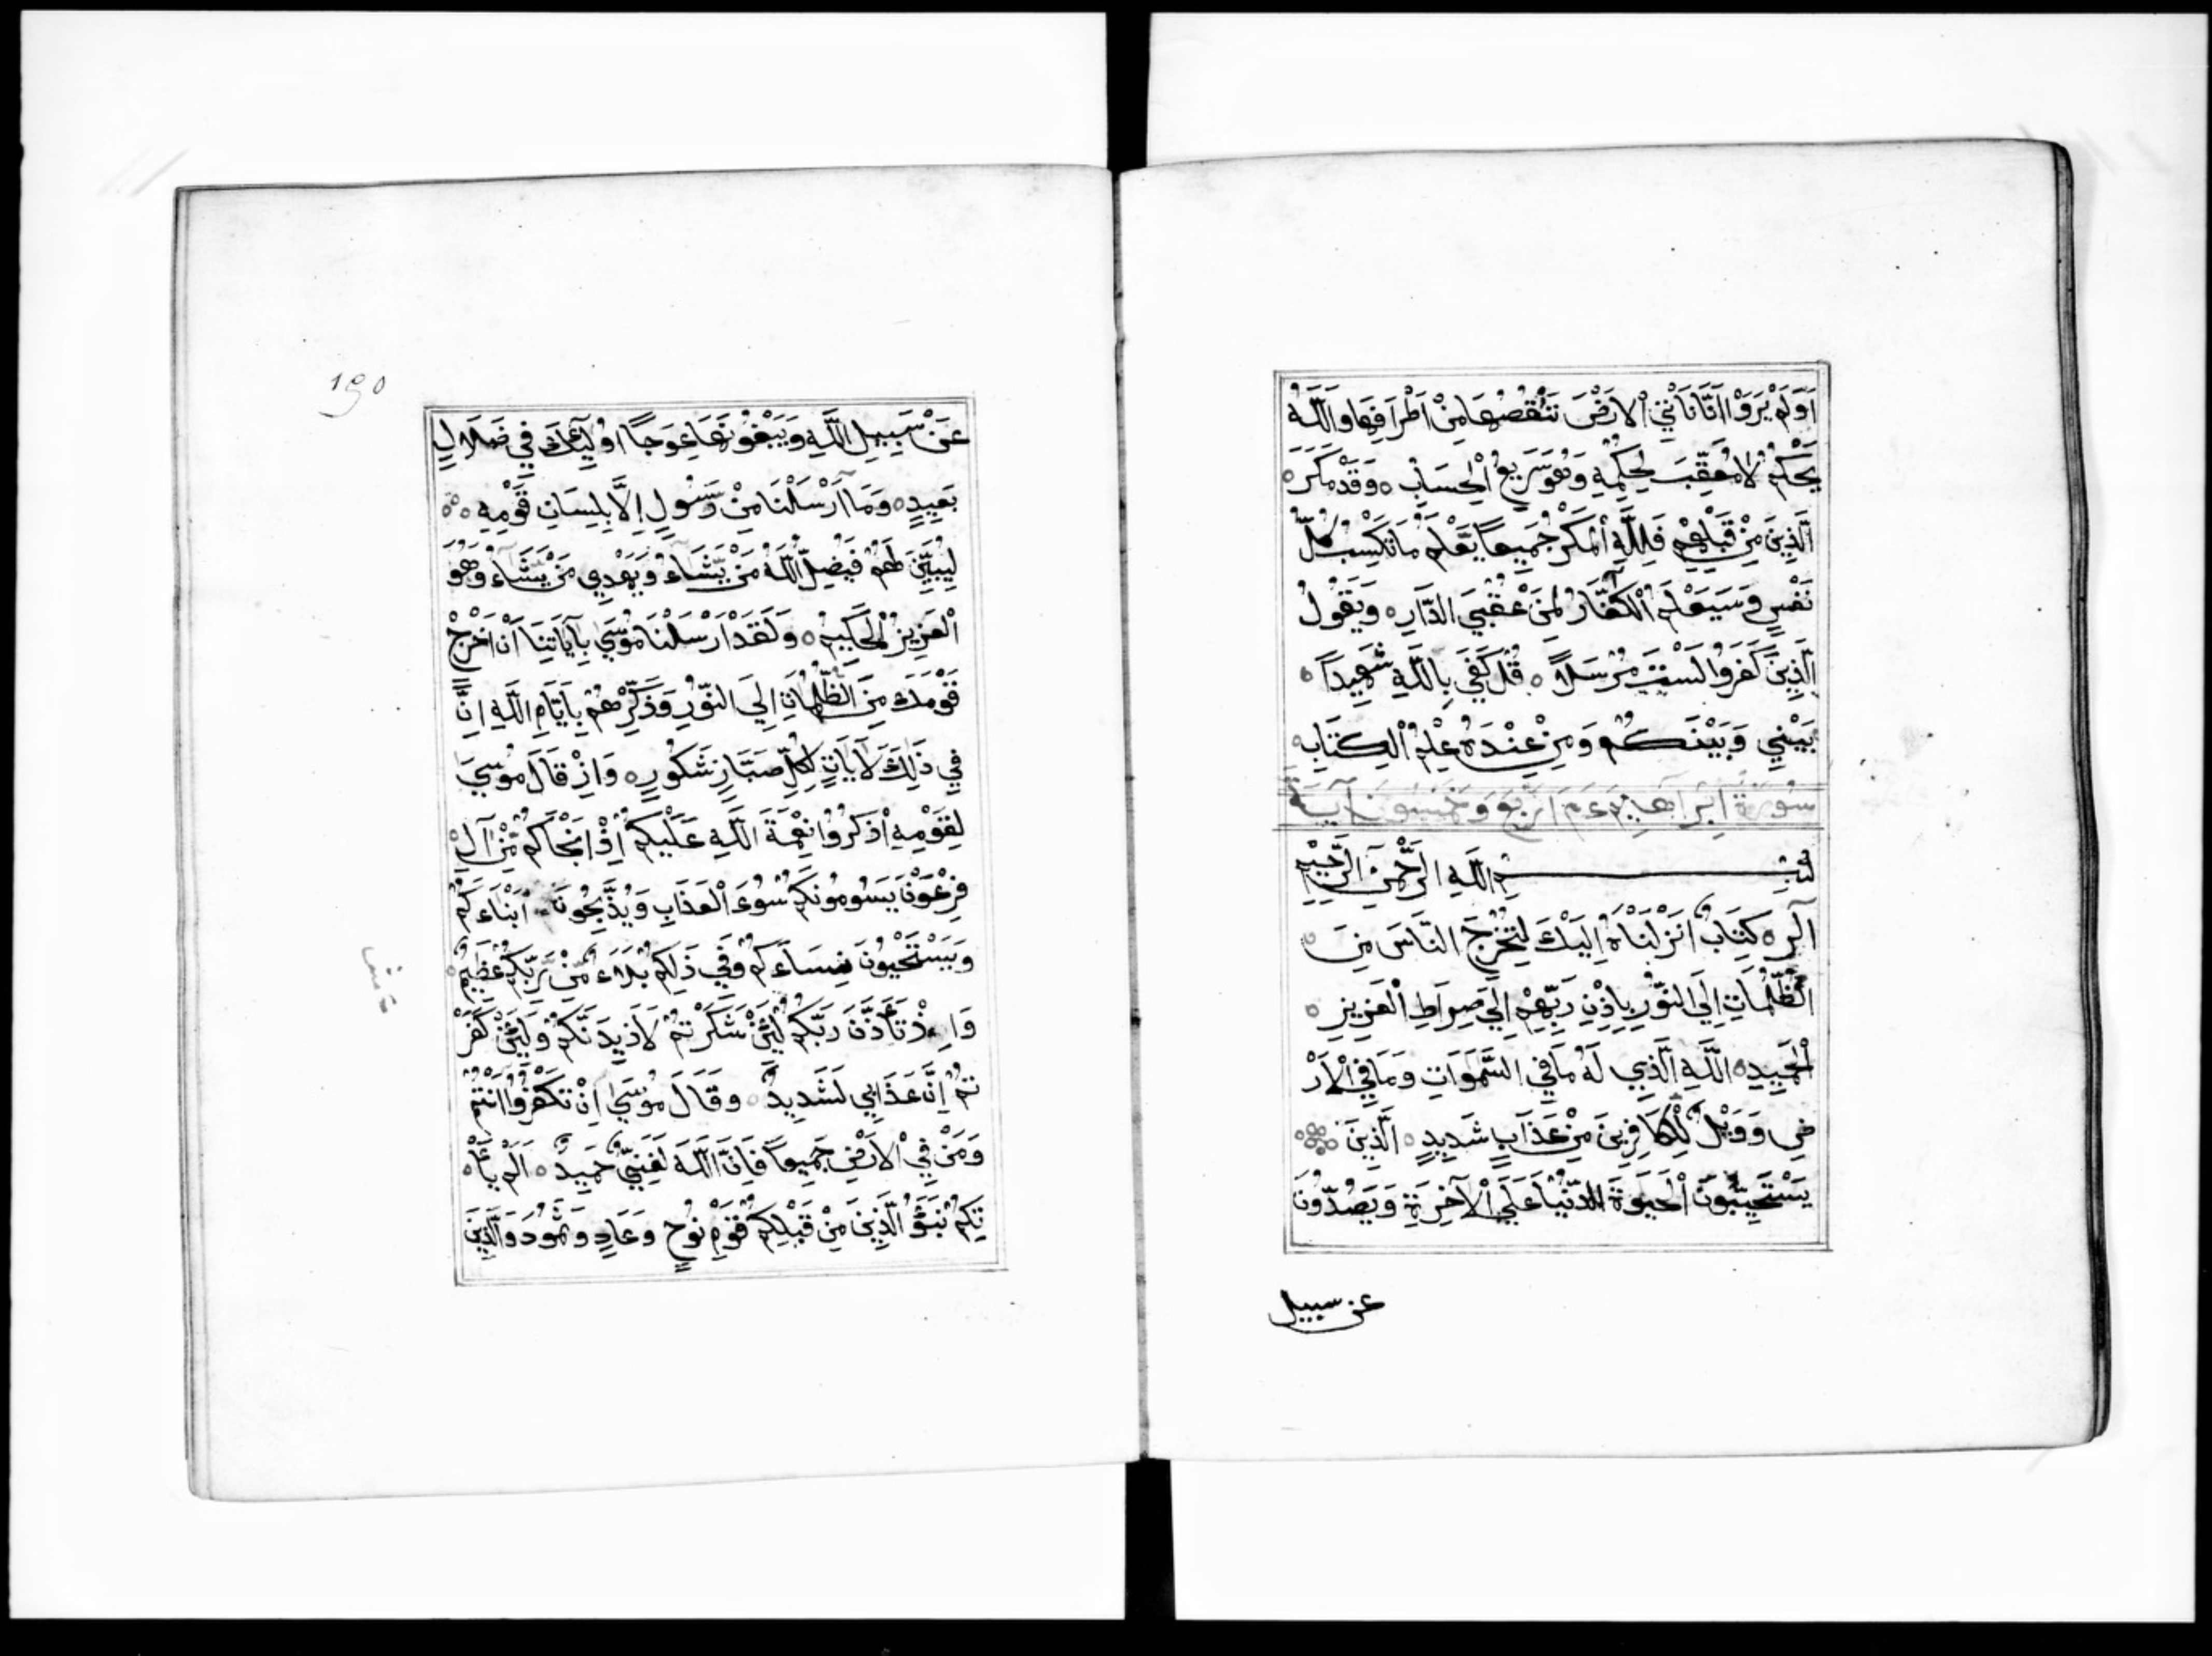 اَوَلَمْ يَرَوْا اَنَّا نَاْتِي الْاَرْضَ نَنْقُصُهَا مِنْ اَطْرَافِهَا وَاللّٰهُ
يَحْكُمُ لَا مُعَقِّبَ لِحُكْمِهِ وَهُوَ سَرِيعُ الْحِسَابِ ۝ وَقَدْ مَكَرَ ۝
الَّذِينَ مِنْ قَبْلِهِمْ فَلِلّٰهِ الْمَكْرُ جَمِيعاً يَعْلَمُ مَا تَكْسِبُ كُلُّ
نَفْسٍ وَسَيَعْلَمُ الْكُفَّارُ لِمَنْ عُقْبَي الدَّارِ ۝ وَيَقُولُ
الَّذِينَ كَفَرُوا لَسْتَ مُرْسَلاً ۝ قُلْ كَفَي بِاللّٰهِ شَهِيداً ۝
بَيْنِي وَبَيْنَكُمْ وَمَنْ عِنْدَهُ عِلْمُ الْكِتَابِ ۝
سُورَةُ اِبْرَاهِيمَ عم اَرْبَعَ وَخَمْسُونَ آيَةً
بِسْمِ اللّٰهِ الرَّحْمٰنِ الرَّحِيْمِ
الٓرٰ ۝ كِتَابٌ اَنْزَلْنَاهُ اِلَيْكَ لِتُخْرِجَ النَّاسَ مِنَ ۝
الظُّلُمَاتِ اِلَي النُّوْرِ بِاِذْنِ رَبِّهِمْ اِلَي صِرَاطِ الْعَزِيزِ ۝
الْحَمِيدِ ۝ اللّٰهِ الَّذِي لَهُ مَا فِي السَّمٰوَاتِ وَمَا فِي الْاَرْ
ضِ وَوَيْلٌ لِّلْكَافِرِينَ مِنْ عَذَابٍ شَدِيدٍ ۝ الَّذِينَ
يَسْتَحِبُّونَ الْحَيٰوةَ الدُّنْيَا عَلَي الْآخِرَةِ وَيَصُدُّونَ
عن سبيل
١٩٥
عَنْ سَبِيلِ اللّٰهِ وَيَبْغُونَهَا عِوَجاً اُولٰٓئِكَ فِي ضَلَالٍ
بَعِيدٍ ۝ وَمَا اَرْسَلْنَا مِنْ رَسُولٍ اِلَّا بِلِسَانِ قَوْمِهِ ۝
لِيُبَيِّنَ لَهُمْ فَيُضِلُّ اللّٰهُ مَنْ يَّشَاءُ وَيَهْدِي مَنْ يَّشَاءُ وَهُوَ
الْعَزِيزُ الْحَكِيمُ ۝ وَلَقَدْ اَرْسَلْنَا مُوْسَي بِآيَاتِنَا اَنْ اَخْرِجْ
قَوْمَكَ مِنَ الظُّلُمَاتِ اِلَي النُّوْرِ وَذَكِّرْهُمْ بِاَيَّامِ اللّٰهِ اِنَّ
فِي ذٰلِكَ لَاٰيَاتٍ لِكُلِّ صَبَّارٍ شَكُورٍ ۝ وَاِذْ قَالَ مُوْسَي
لِقَوْمِهِ اذْكُرُوا نِعْمَةَ اللّٰهِ عَلَيْكُمْ اِذْ اَنْجَاكُمْ مِّنْ آلِ ۝
فِرْعَوْنَ يَسُومُونَكُمْ سُوْءَ الْعَذَابِ وَيُذَبِّحُونَ اَبْنَاءَكُمْ
وَيَسْتَحْيُونَ نِسَاءَكُمْ وَفِي ذٰلِكُمْ بَلَاءٌ مِّنْ رَّبِّكُمْ عَظِيمٌ ۝
وَاِذْ تَاَذَّنَ رَبُّكُمْ لَئِنْ شَكَرْتُمْ لَاَزِيدَنَّكُمْ وَلَئِنْ كَفَرْ
تُمْ اِنَّ عَذَابِي لَشَدِيدٌ ۝ وَقَالَ مُوْسَي اِنْ تَكْفُرُوا اَنْتُمْ
وَمَنْ فِي الْاَرْضِ جَمِيعاً فَاِنَّ اللّٰهَ لَغَنِيٌّ حَمِيدٌ ۝ اَلَمْ يَاْ ۝
تِكُمْ نَبَؤُ الَّذِينَ مِنْ قَبْلِكُمْ قَوْمِ نُوْحٍ وَعَادٍ وَثَمُودَ وَالَّذِينَ